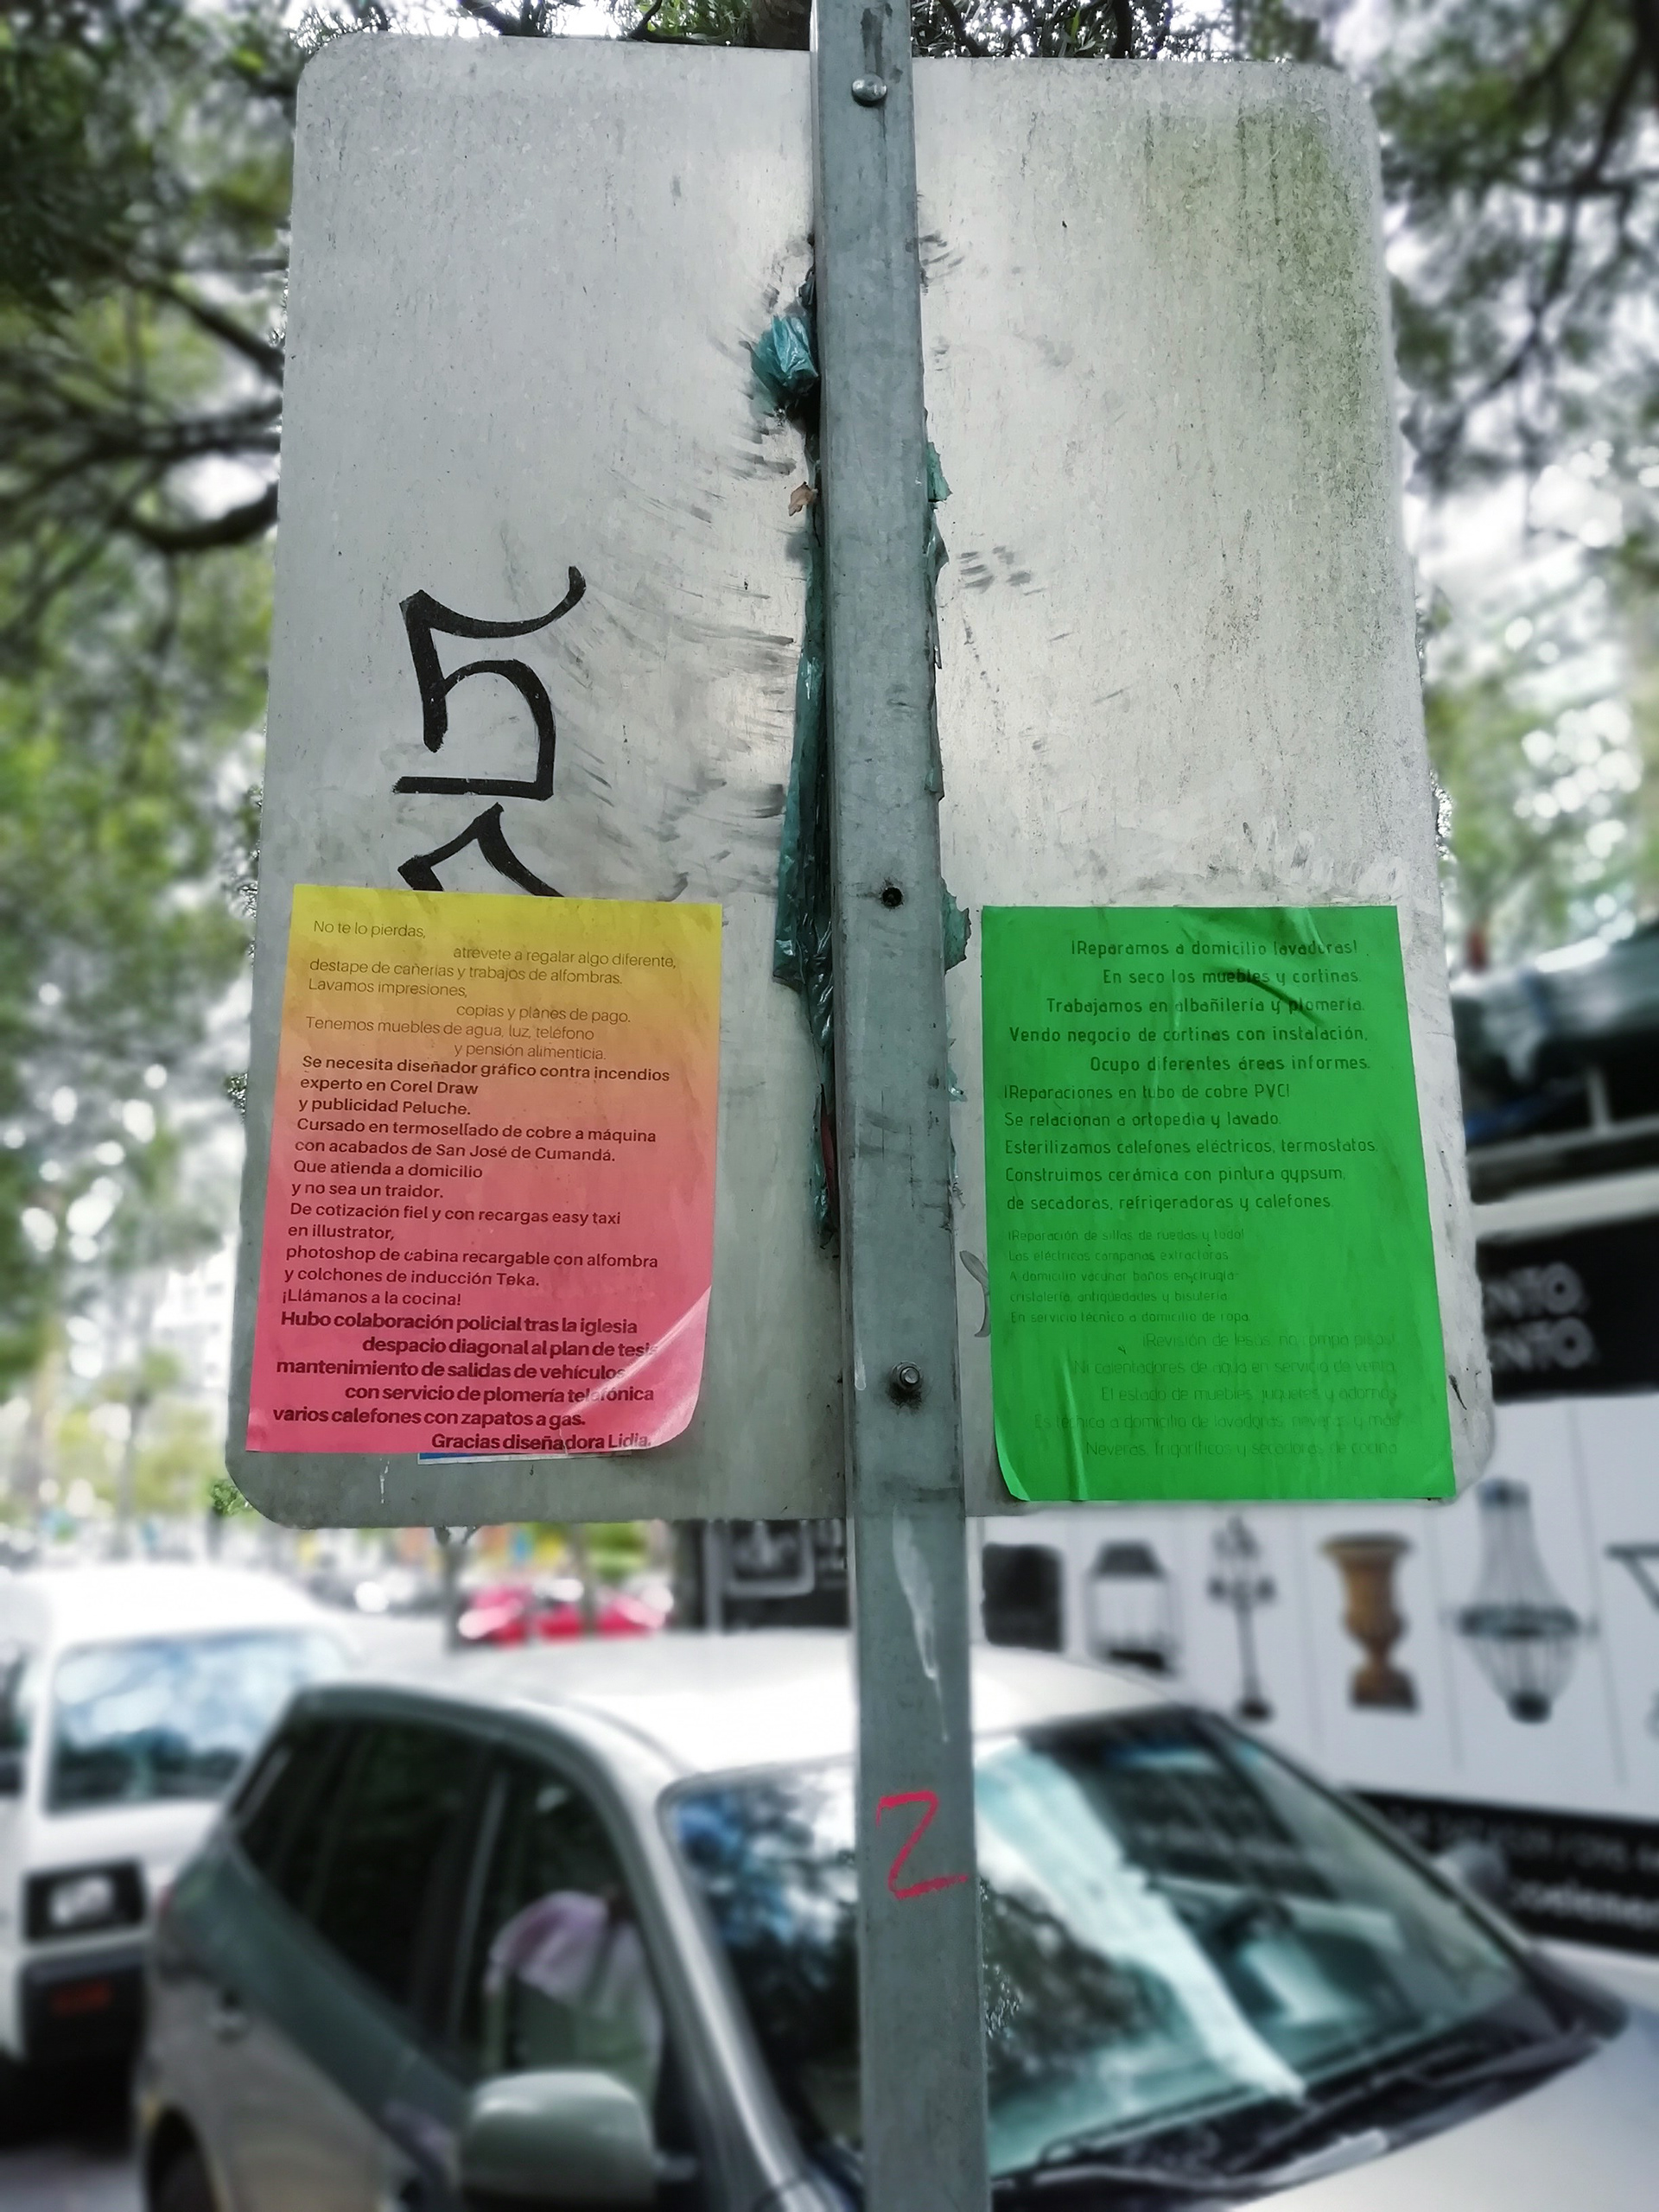 No te lo pierdas,
atrevete a regalar algo diferente,
destape de cañerías y trabajos de alfombras.
Lavamos impresiones,
copias y planes de pago.
Tenemos muebles de agua, luz, teléfono
y pensión alimenticia.
Se necesita diseñador gráfico contra incendios
experto en Corel Draw
y publicidad Peluche.
Cursado en termosellado de cobre a máquina
con acabados de San José de Cumandá.
Que atienda a domicilio
y no sea un traidor.
De cotización fiel y con recargas easy taxi
en illustrator,
photoshop de cabina recargable con alfombra
y colchones de inducción Teka.
¡Llámanos a la cocina!
Hubo colaboración policial tras la iglesia
despacio diagonal al plan de tesis
mantenimiento de salidas de vehículos
con servicio de plomería telefónica
varios calefones con zapatos a gas.
Gracias diseñadora Lidia.
¡Reparamos a domicilio lavadoras!
En seco los muebles y cortinas.
Trabajamos en albañilería y plomería.
Vendo negocio de cortinas con instalación,
Ocupo diferentes áreas informes.
¡Reparaciones en tubo de cobre PVC!
Se relacionan a ortopedia y lavado.
Esterilizamos calefones eléctricos, termostatos.
Construimos cerámica con pintura gypsum,
de secadoras, refrigeradoras y calefones.
¡Reparación de sillas de ruedas y todo!
Los eléctricos campanas extractoras
A domicilio vacunar baños en cirugía
cristalería, antigüedades y bisutería.
En servicio técnico a domicilio de ropa
¡Revisión de tesis, no compa
Ni calentadores de agua en servicio de venta
El estado de muebles, juguetes y adornos
Es técnica a domicilio de lavadoras, neveras y más
Neveras, frigoríficos y secadoras de cocina
2